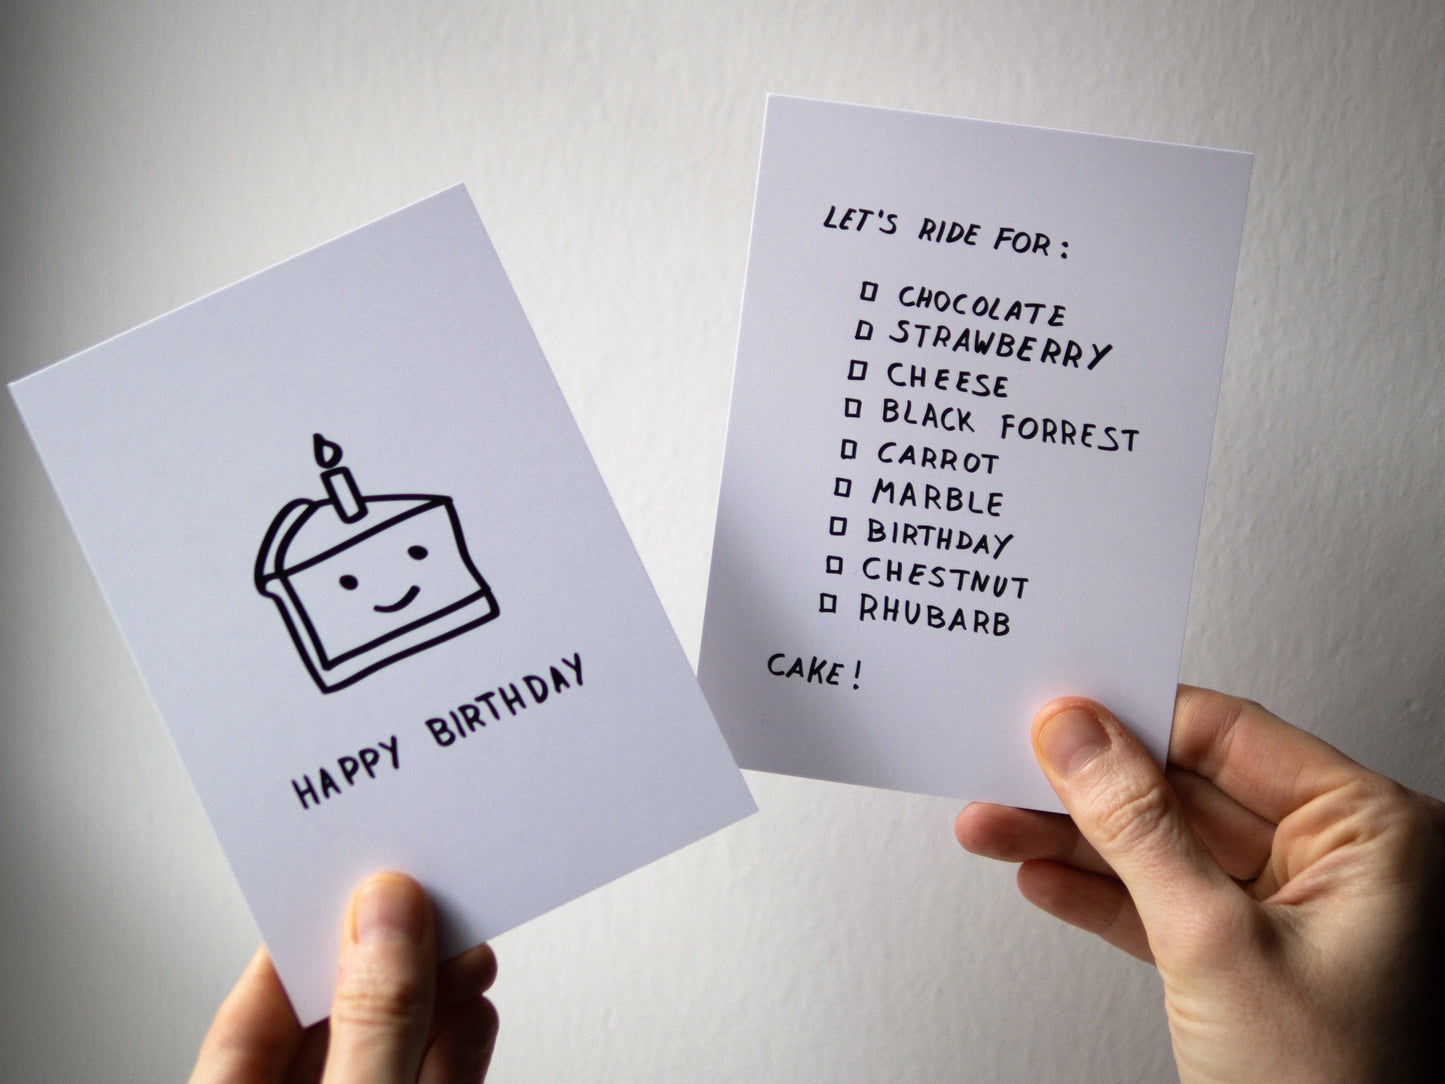 HAPPY BIRTHDAY
LET'S RIDE FOR:
CHOCOLATE
STRAWBERRY
CHEESE
BLACK FORREST
CARROT
MARBLE
BIRTHDAY
CHESTNUT
RHUBARB
CAKE!